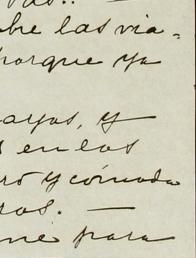 bre las via=
porque ya
ayas, y
en los
ro y cómoda
ros. —
ne para